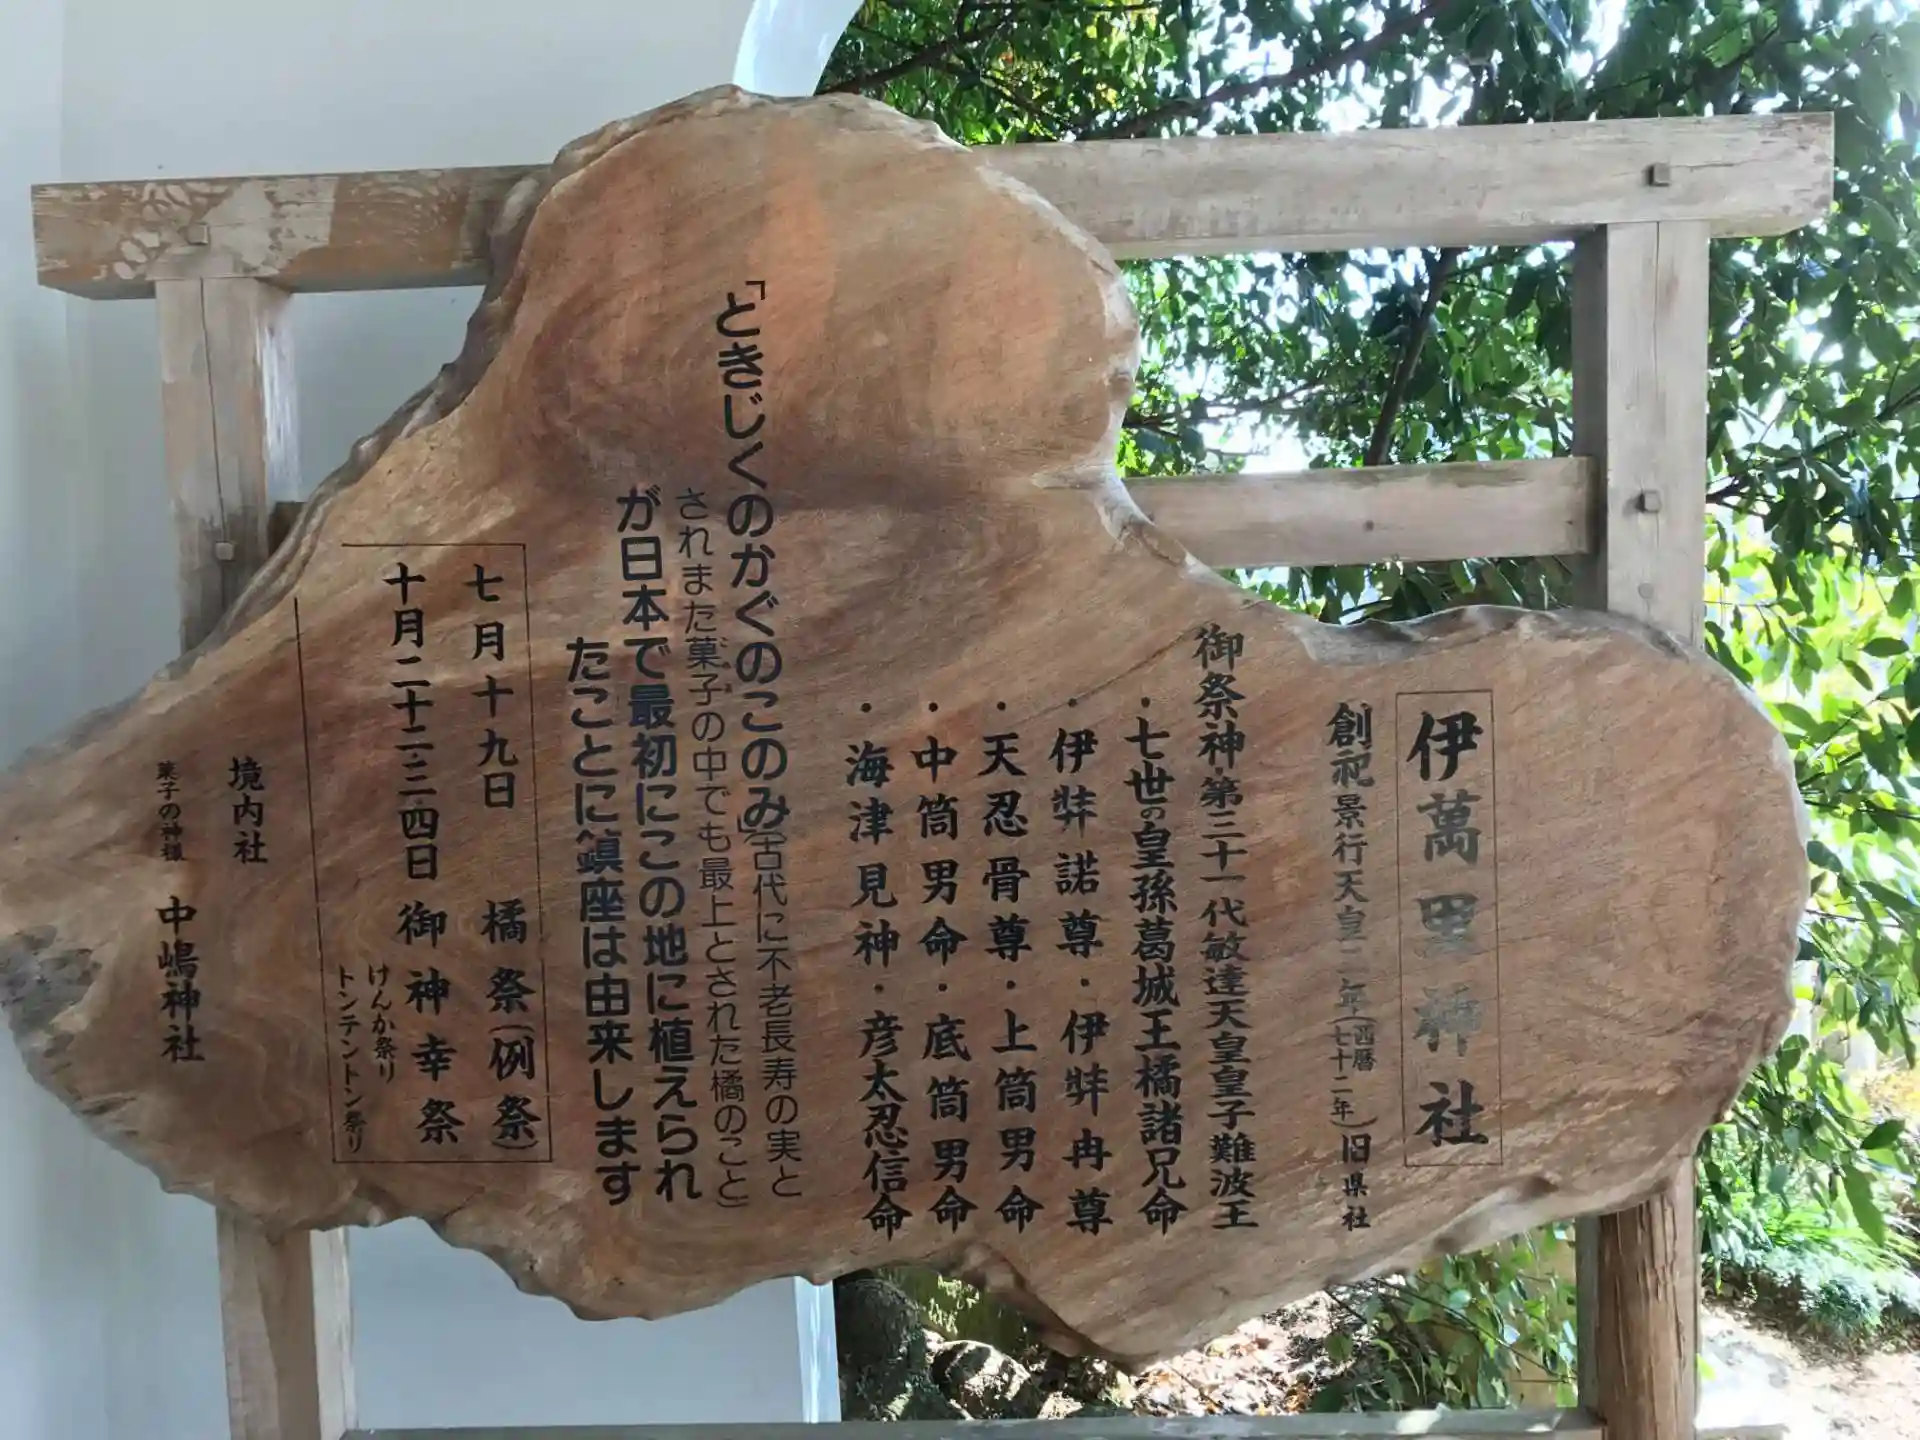 伊萬里神社
創祀 景行天皇二年(西暦七十二年)旧県社
御祭神・第三十一代敏達天皇皇子難波王
・七世の皇孫葛城王橘諸兄命
・伊弉諾尊・伊弉冉尊
・天忍骨尊・上筒男命
・中筒男命・底筒男命
・海津見神・彦太忍信命
「ときじくのかぐのこのみ」(古代に不老長寿の実と
されまた菓子の中でも最上とされた橘のこと)
が日本で最初にこの地に植えられ
たことに鎮座は由来します
七月十九日 橘祭(例祭)
十月二十二・二・四日 御神幸祭
けんか祭り
トンテントン祭り
境内社
菓子の神様 中嶋神社